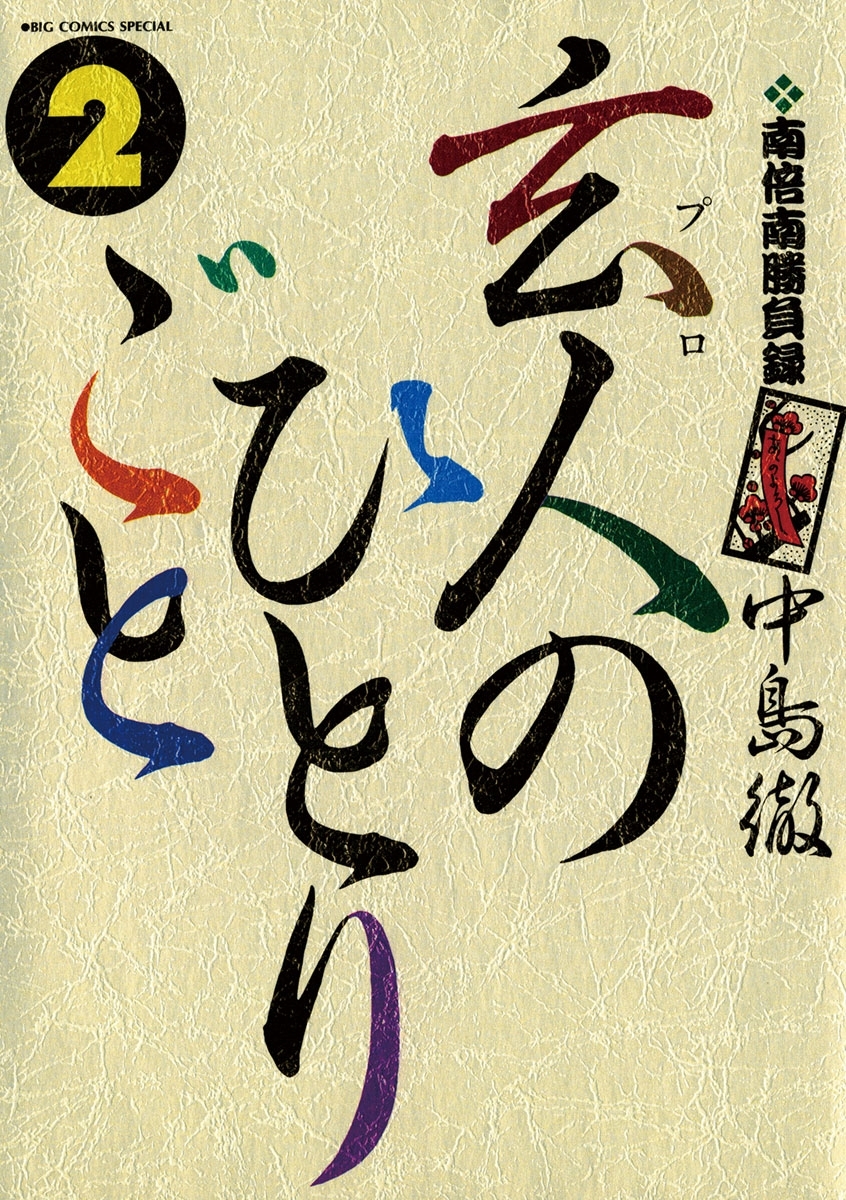 ●BIG COMICS SPECIAL
2
❖南倍南勝負録
あのよろし
中島徹
玄人の
プロ
ひとり
ごと